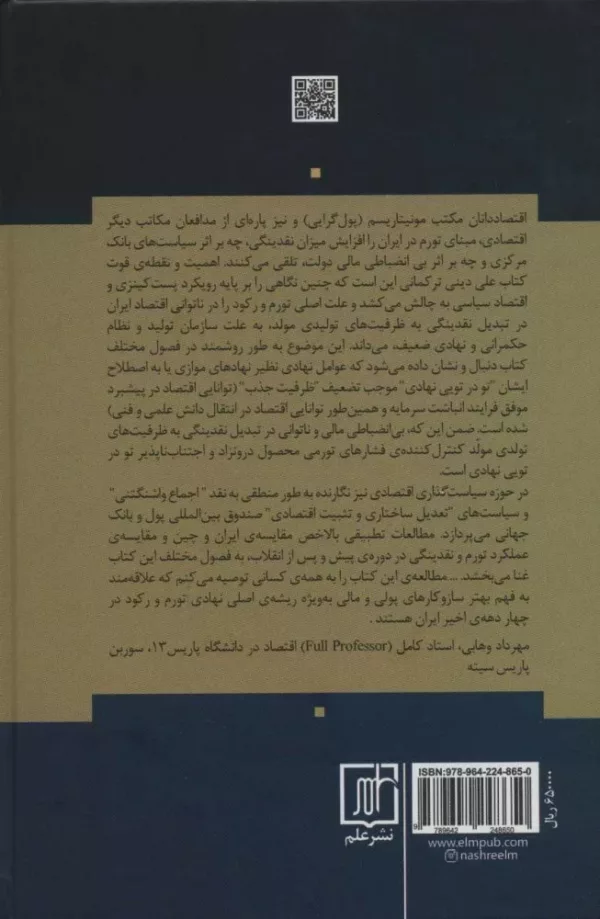 اقتصاددانان مکتب مونیتاریسم (پول‌گرایی) و نیز پاره‌ای از مدافعان مکاتب دیگر
اقتصادی، مبنای تورم در ایران را افزایش میزان نقدینگی، چه بر اثر سیاست‌های بانک
مرکزی و چه بر اثر بی انضباطی مالی دولت، تلقی می‌کنند. اهمیت و نقطه‌ی قوت
کتاب علی دینی ترکمانی این است که چنین نگاهی را بر پایه رویکرد پست‌کینزی و
اقتصاد سیاسی به چالش می‌کشد و علت اصلی تورم و رکود را در ناتوانی اقتصاد ایران
در تبدیل نقدینگی به ظرفیت‌های تولیدی مولد، به علت سازمان تولید و نظام
حکمرانی و نهادی ضعیف، می‌داند. این موضوع به طور روشمند در فصول مختلف
کتاب دنبال و نشان داده می‌شود که عوامل نهادی نظیر نهادهای موازی یا به اصطلاح
ایشان "تو در تویی نهادی" موجب تضعیف "ظرفیت جذب" (توانایی اقتصاد در پیشبرد
موفق فرایند انباشت سرمایه و همین‌طور توانایی اقتصاد در انتقال دانش علمی و فنی)
شده است. ضمن این که، بی‌انضباطی مالی و ناتوانی در تبدیل نقدینگی به ظرفیت‌های
تولدی مولّد کنترل‌کننده‌ی فشارهای تورمی محصول درونزاد و اجتناب‌ناپذیر تو در
تویی نهادی است.
در حوزه سیاست‌گذاری اقتصادی نیز نگارنده به طور منطقی به نقد "اجماع واشنگتنی"
و سیاست‌های "تعدیل ساختاری و تثبیت اقتصادی" صندوق بین‌المللی پول و بانک
جهانی می‌پردازد. مطالعات تطبیقی بالاخص مقایسه‌ی ایران و چین و مقایسه‌ی
عملکرد تورم و نقدینگی در دوره‌ی پیش و پس از انقلاب، به فصول مختلف این کتاب
غنا می‌بخشد. ... مطالعه‌ی این کتاب را به همه‌ی کسانی توصیه می‌کنم که علاقه‌مند
به فهم بهتر سازوکارهای پولی و مالی به‌ویژه ریشه‌ی اصلی نهادی تورم و رکود در
چهار دهه‌ی اخیر ایران هستند.
مهرداد وهابی، استاد کامل (Full Professor) اقتصاد در دانشگاه پاریس۱۳، سوربن
پاریس سیته
نشر علم
ISBN: 978-964-224-865-0
9 789642 248650
www.elmpub.com
nashreelm
۶۵۰۰۰۰ ریال